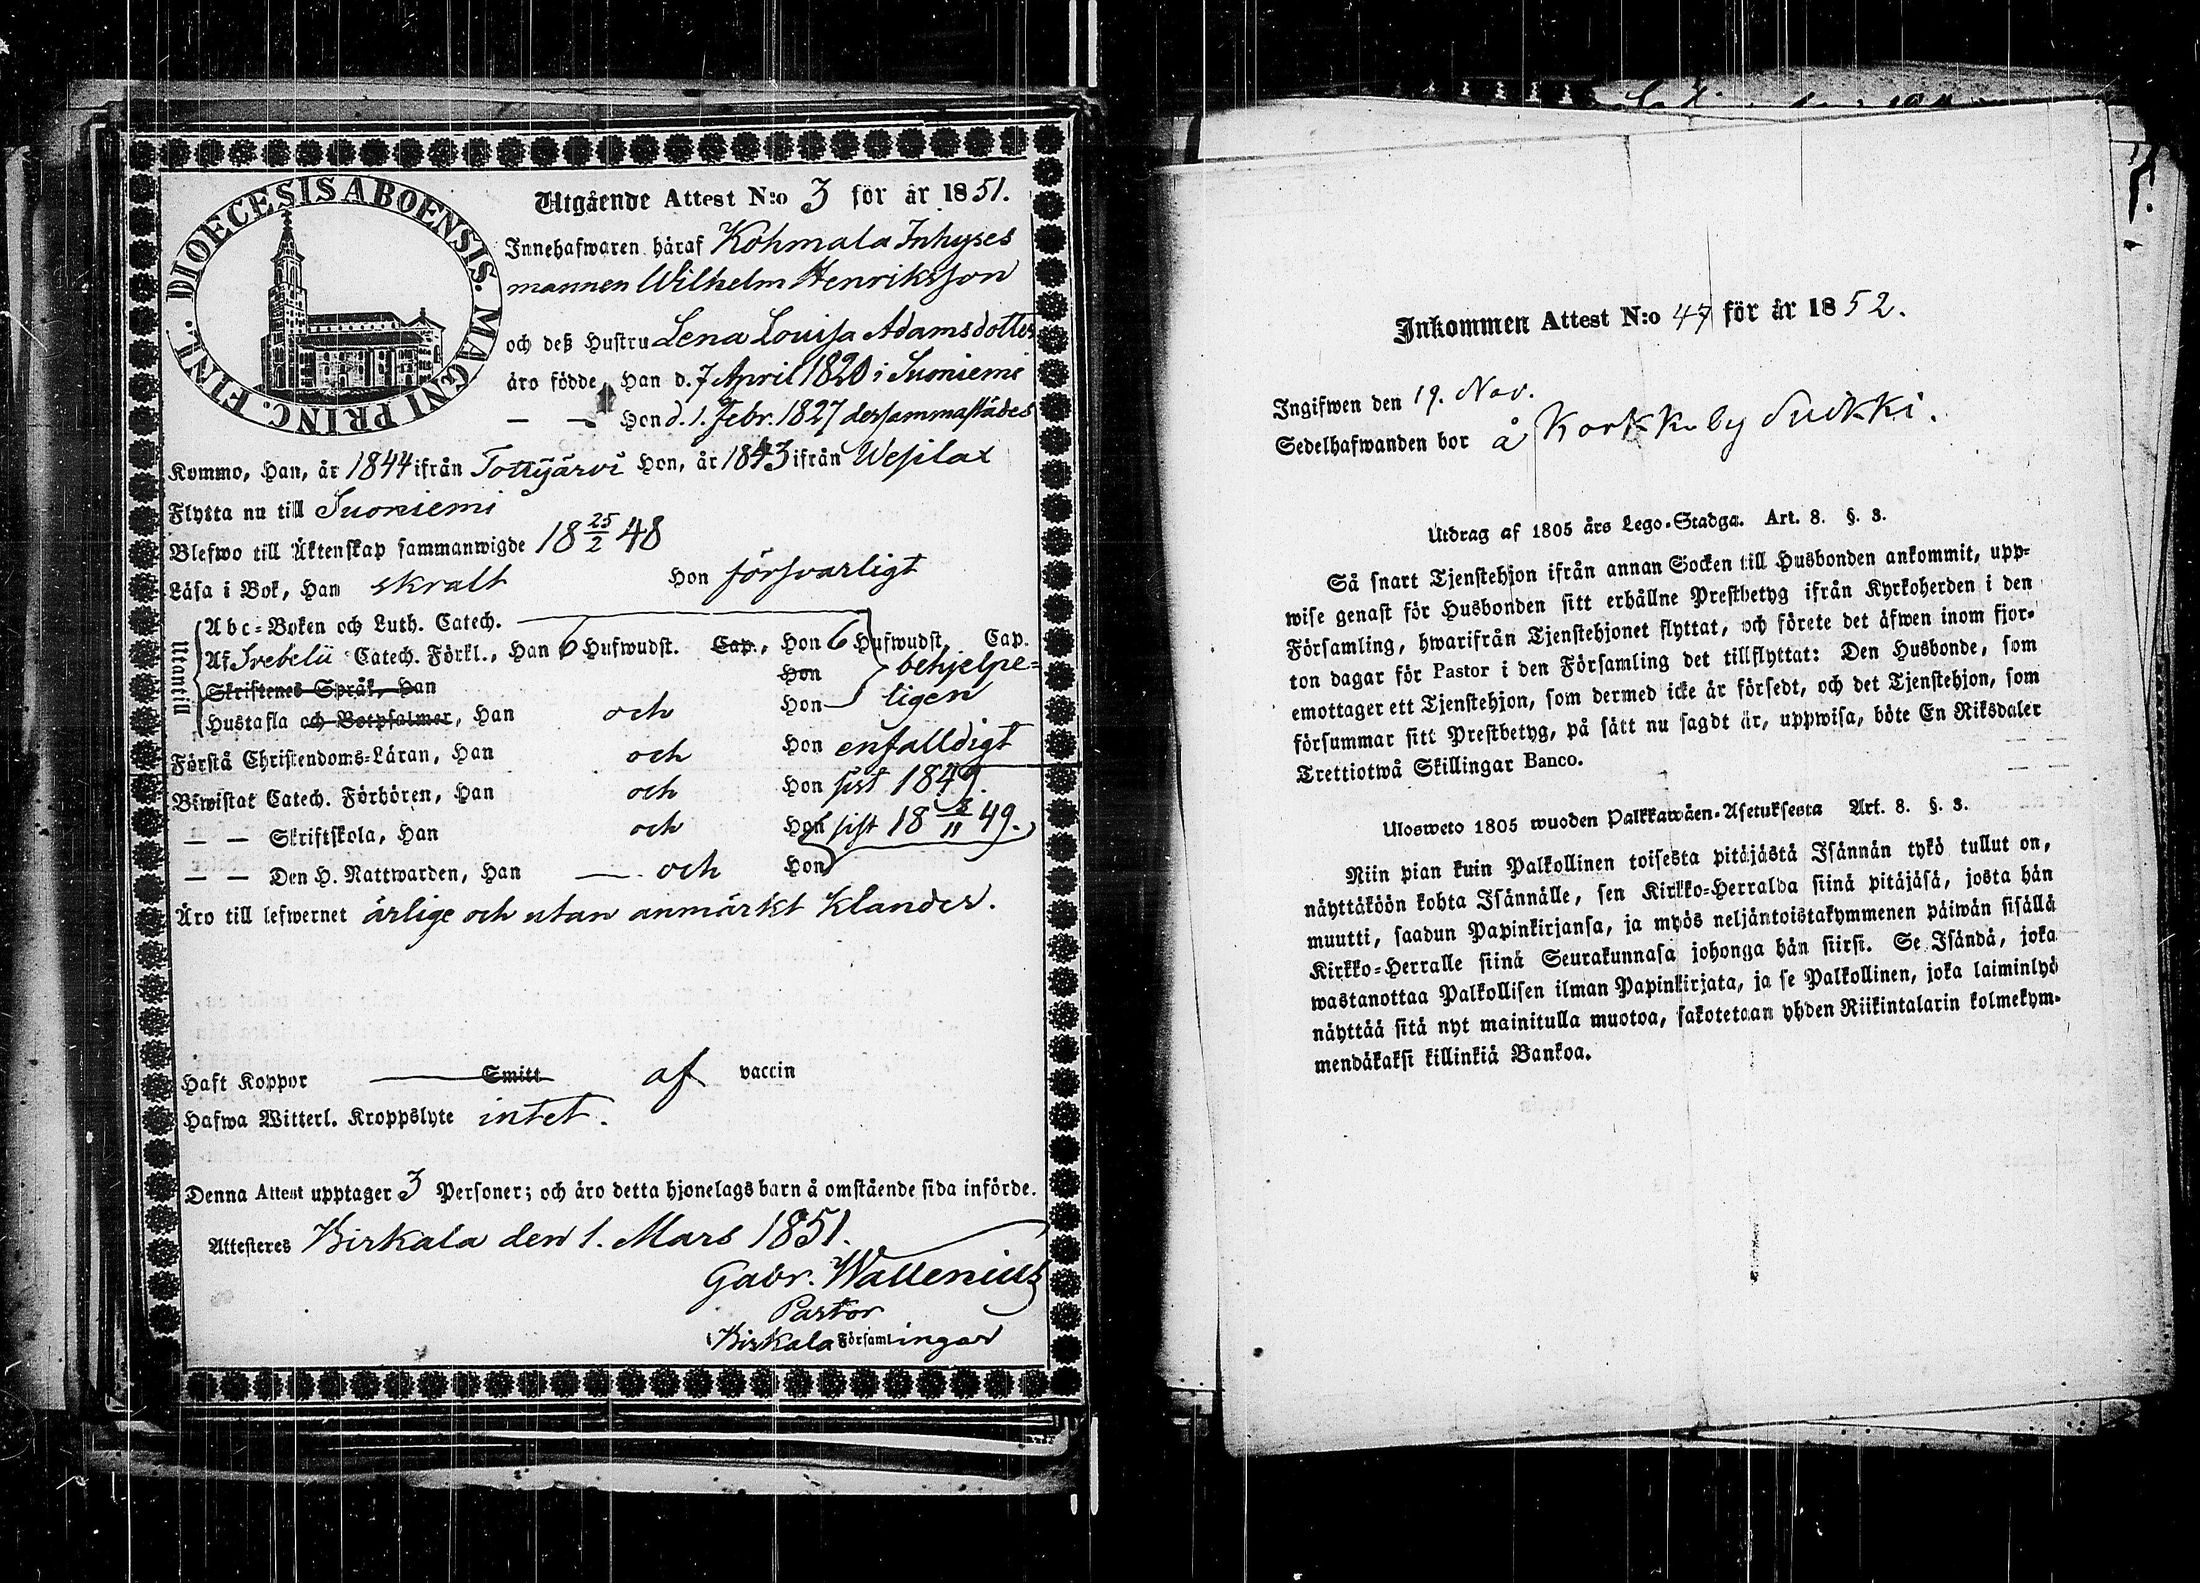 DIOECESIS ABOENSIS. MAGNI PRINC. FINL.
Utgående Attest N:o 3 för år 1851.
Innehafwaren häraf Kohmala Inhyses
mannen Wilhelm Henriksson
och deß Hustru Lena Louisa Adamsdotter
äro födde, Han d. 7 April 1820 i Suoniemi
— — Hon d. 1. Febr. 1827 dersammastädes
Kommo, Han, år 1844 ifrån Tottijärvi Hon, år 1843 ifrån Wesilax
Flytta nu till Suoniemi
Blefwo till Äktenskap sammanwigde 18 25/2 48
Läsa i Bok, Han skralt Hon försvarligt
Utantill
Abc-Boken och Luth. Catech.
Af Svebelii Catech. Förkl., Han 6 Hufwudst. Cap., Hon 6 Hufwudst. Cap.
Skriftenes Språk, Han Hon behjelpe-
Hustafla och Botpsalmer, Han och Hon ligen
Förstå Christendoms-Läran, Han och Hon enfalldigt
Biwistat Catech. Förhören, Han och Hon sist 1849.
— — Skriftskola, Han och Hon sist 18 /11 49.
— — Den H. Nattwarden, Han — och Hon
Äro till lefwernet ärlige och utan anmärkt klander.
Haft Koppor Smitt af vaccin
Hafwa Witterl. Kroppslyte intet.
Denna Attest upptager 3 Personer; och äro detta hjonelags barn å omstående sida införde.
Attesteres Birkala den 1. Mars 1851.
Gabr. Wallenius
Pastor
Birkala Församlingar
Inkommen Attest N:o 47 för år 1852.
Ingifwen den 19. Nov.
Sedelhafwanden bor å Korkkeby Suikki.
Utdrag af 1805 års Lego-Stadga. Art. 8. §. 3.
Så snart Tjenstehjon ifrån annan Socken till Husbonden ankommit, upp-
wise genast för Husbonden sitt erhållne Prestbetyg ifrån Kyrkoherden i den
Församling, hwarifrån Tjenstehjonet flyttat, och förete det äfwen inom fjor-
ton dagar för Pastor i den Församling det tillflyttat: Den Husbonde, som
emottager ett Tjenstehjon, som dermed icke är försedt, och det Tjenstehjon, som
försummar sitt Prestbetyg, på sätt nu sagdt är, uppwisa, böte En Riksdaler
Trettiotwå Skillingar Banco.
Ulosweto 1805 wuoden Palkkawäen-Asetuksesta Art. 8. §. 3.
Niin pian kuin Palkollinen toisesta pitäjästä Isännän tykö tullut on,
näyttäköön kohta Isännälle, sen Kirkko-Herralda siinä pitäjäsä, josta hän
muutti, saadun Papinkirjansa, ja myös neljäntoistakymmenen päiwän sisällä
Kirkko-Herralle siinä Seurakunnasa johonga hän siirsi. Se Isändä, joka
wastanottaa Palkollisen ilman Papinkirjata, ja se Palkollinen, joka laiminlyö
näyttää sitä nyt mainitulla muotoa, sakotetaan yhden Riikintalarin kolmekym-
mendäkaksi killinkiä Bankoa.